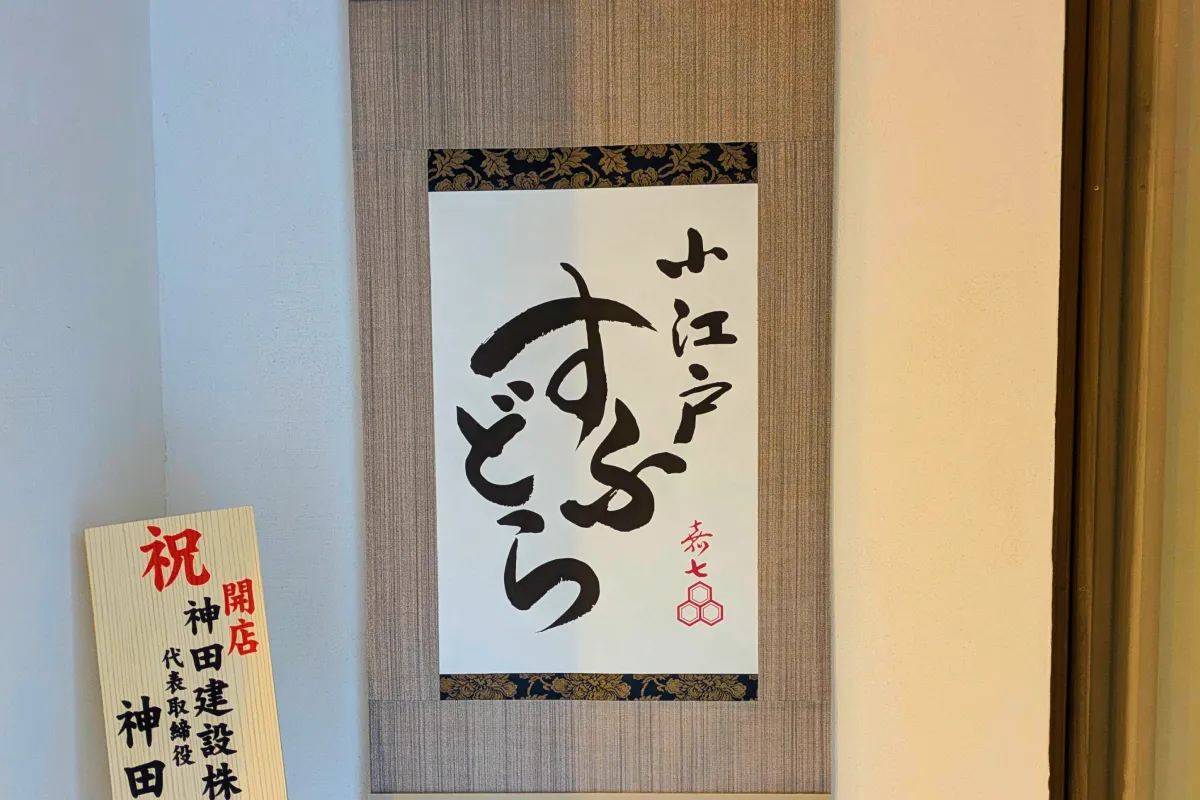 小江戸
すふどら
嘉七
祝
開店
神田建設株
代表取締役
神田